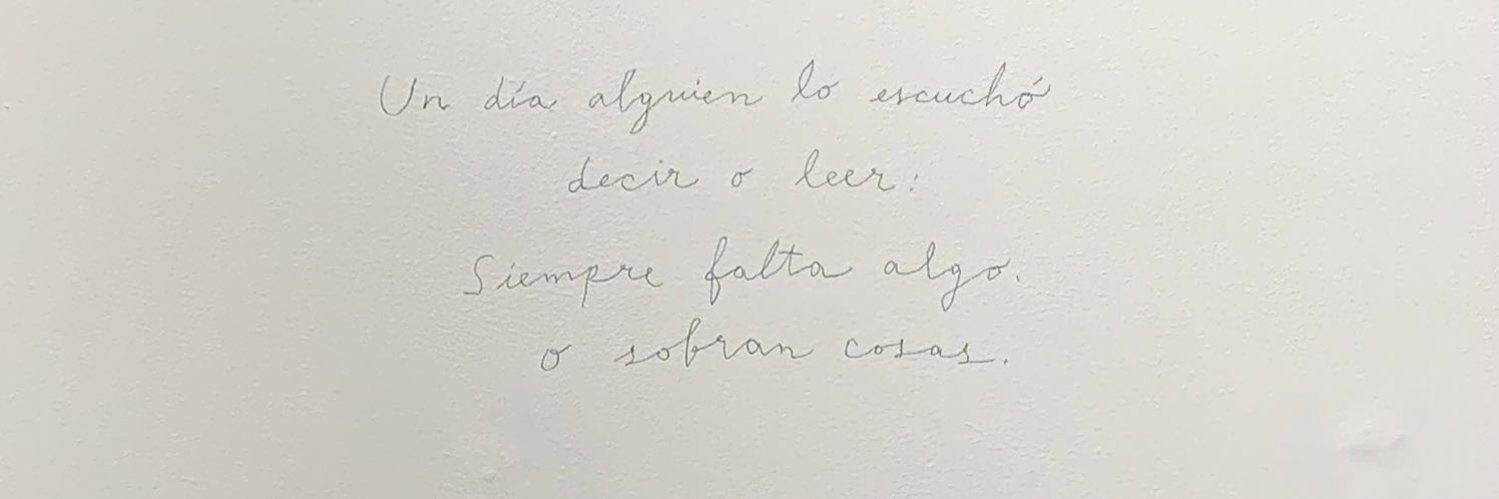 Un día alguien lo escuchó
decir o leer:
Siempre falta algo.
o sobran cosas.